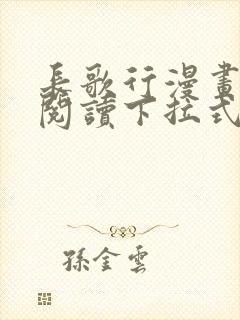 長歌行漫畫
閱讀下拉式
孫金雲